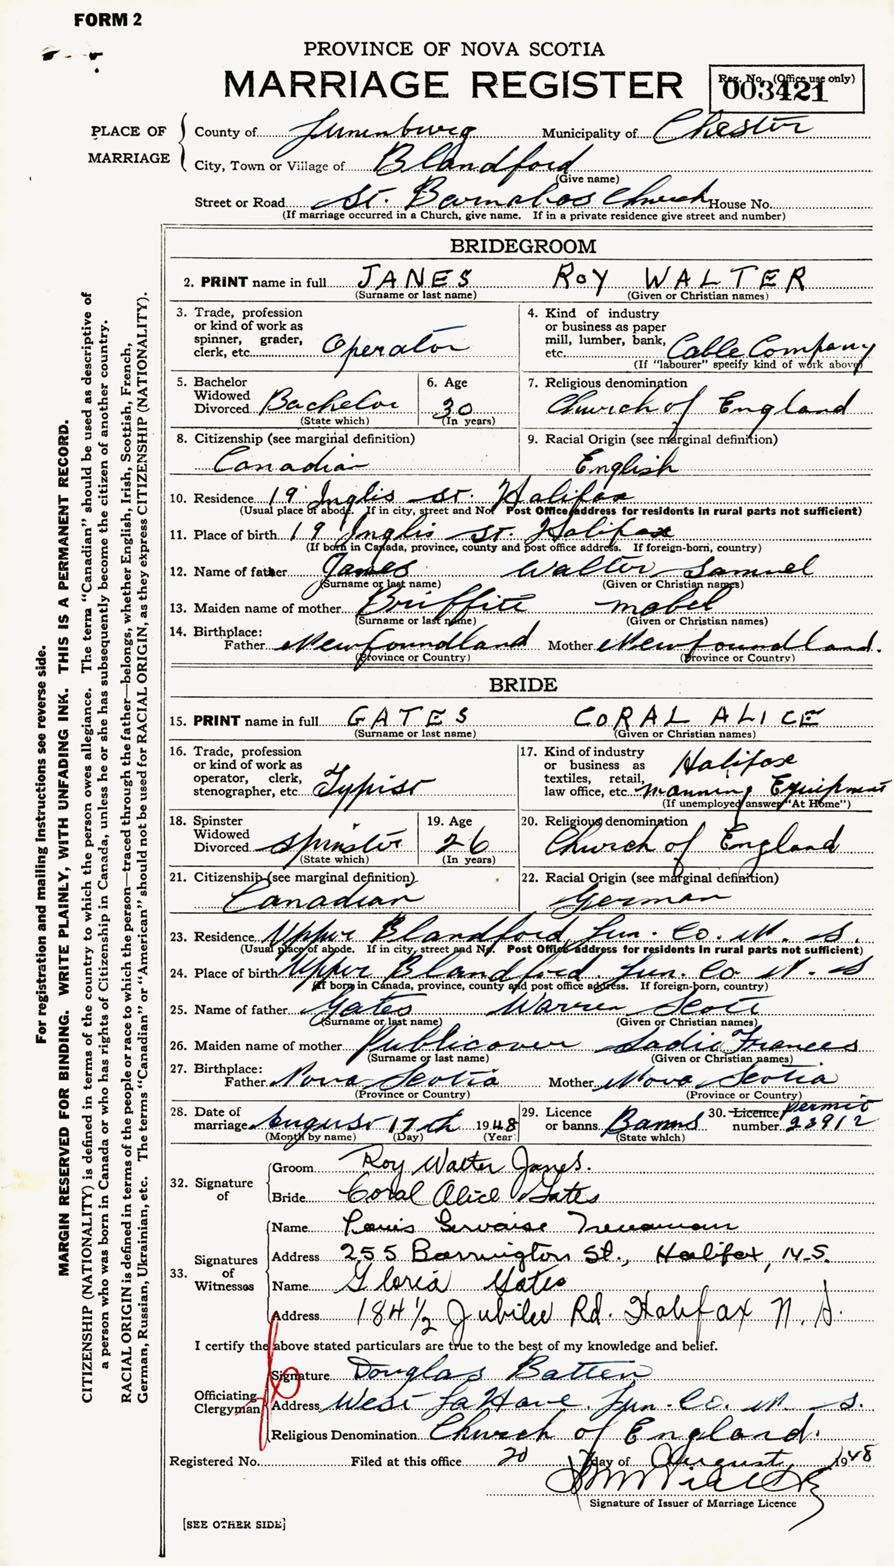 FORM 2
PROVINCE OF NOVA SCOTIA
MARRIAGE REGISTER
Reg. No. (Office use only)
003421
PLACE OF MARRIAGE
County of Lunenburg Municipality of Chester
City, Town or Village of Blandford
(Give name)
Street or Road St. Barnabas Church House No.
(If marriage occurred in a Church, give name. If in a private residence give street and number)
BRIDEGROOM
2. PRINT name in full JANES ROY WALTER
(Surname or last name) (Given or Christian names)
3. Trade, profession or kind of work as spinner, grader, clerk, etc. Operator
4. Kind of industry or business as paper mill, lumber, bank, etc. Cable Company
(If "labourer" specify kind of work above)
5. Bachelor Widowed Divorced Bachelor
(State which)
6. Age 30
(In years)
7. Religious denomination
Church of England
8. Citizenship (see marginal definition)
Canadian
9. Racial Origin (see marginal definition)
English
10. Residence 19 Inglis St. Halifax
(Usual place of abode. If in city, street and No. Post Office address for residents in rural parts not sufficient)
11. Place of birth 19 Inglis St. Halifax
(If born in Canada, province, county and post office address. If foreign-born, country)
12. Name of father Janes Walter Samuel
(Surname or last name) (Given or Christian names)
13. Maiden name of mother Mabel
(Surname or last name) (Given or Christian names)
14. Birthplace:
Father Newfoundland Mother Newfoundland.
(Province or Country) (Province or Country)
BRIDE
15. PRINT name in full GATES CORAL ALICE
(Surname or last name) (Given or Christian names)
16. Trade, profession or kind of work as operator, clerk, stenographer, etc. Typist
17. Kind of industry or business as textiles, retail, law office, etc. Halifax Manning Equipment
(If unemployed answer "At Home")
18. Spinster Widowed Divorced Spinster
(State which)
19. Age 26
(In years)
20. Religious denomination
Church of England
21. Citizenship (see marginal definition)
Canadian
22. Racial Origin (see marginal definition)
German
23. Residence Upper Blandford Lun. Co. N. S.
(Usual place of abode. If in city, street and No. Post Office address for residents in rural parts not sufficient)
24. Place of birth Upper Blandford Lun. Co N. S
(If born in Canada, province, county and post office address. If foreign-born, country)
25. Name of father Gates Warren Scott
(Surname or last name) (Given or Christian names)
26. Maiden name of mother Publicover Sadie Frances
(Surname or last name) (Given or Christian names)
27. Birthplace:
Father Nova Scotia Mother Nova Scotia
(Province or Country) (Province or Country)
28. Date of marriage August 17th 1948
(Month by name) (Day) (Year)
29. Licence or banns Banns
(State which)
30. Licence permit number 23912
32. Signature of
Groom Roy Walter Janes.
Bride Coral Alice Gates
33. Signatures of Witnesses
Name Louis Gervaise
Address 255 Barrington St., Halifax, N.S.
Name Gloria Gates
Address 184 1/2 Jubilee Rd. Halifax N. S.
I certify the above stated particulars are true to the best of my knowledge and belief.
Officiating Clergyman
Signature Douglas Batten
Address West LaHave Lun. Co. N. S.
Religious Denomination Church of England.
Registered No. Filed at this office 20 day of August 1948
Signature of Issuer of Marriage Licence
[SEE OTHER SIDE]
For registration and mailing instructions see reverse side.
MARGIN RESERVED FOR BINDING. WRITE PLAINLY, WITH UNFADING INK. THIS IS A PERMANENT RECORD.
CITIZENSHIP (NATIONALITY) is defined in terms of the country to which the person owes allegiance. The term "Canadian" should be used as descriptive of
a person who was born in Canada or who has rights of Citizenship in Canada, unless he or she has subsequently become the citizen of another country.
RACIAL ORIGIN is defined in terms of the people or race to which the person—traced through the father—belongs, whether English, Irish, Scottish, French,
German, Russian, Ukrainian, etc. The terms "Canadian" or "American" should not be used for RACIAL ORIGIN, as they express CITIZENSHIP (NATIONALITY).